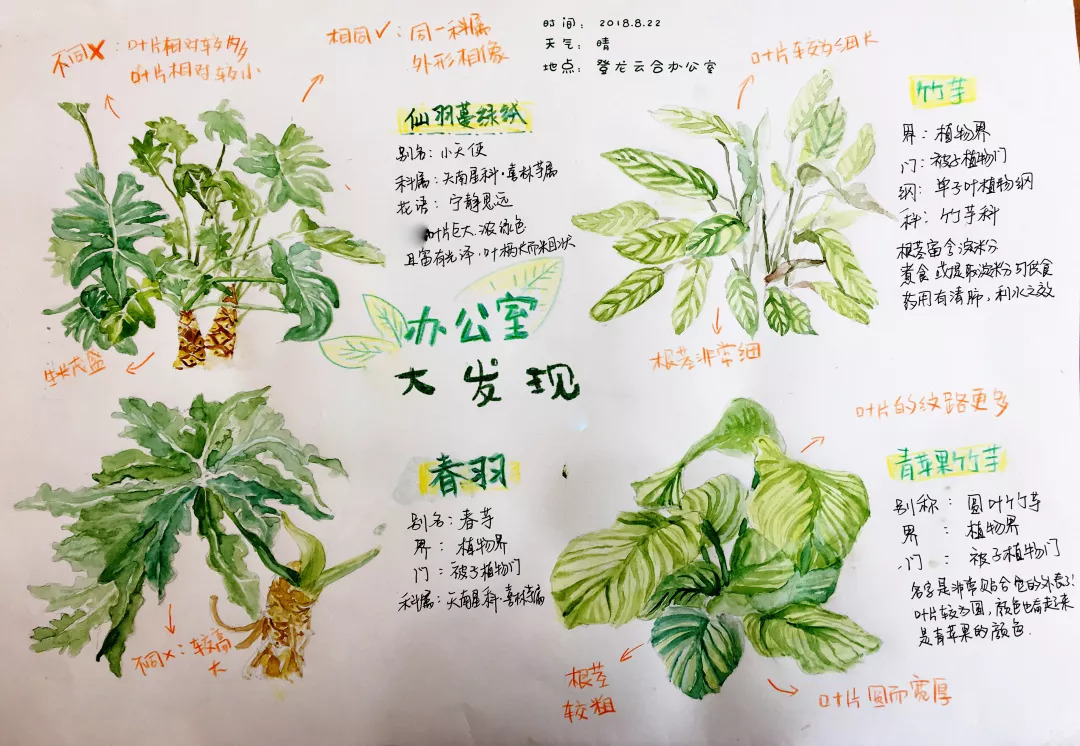 时间：2018.8.22
天气：晴
地点：登龙云合办公室
不同×：叶片相对较多
叶片相对较小
相同✓：同一科属
外形相像
仙羽蔓绿绒
别名：小天使
科属：天南星科·喜林芋属
花语：宁静思远
叶片巨大，浓绿色
且富有光泽，叶柄长而粗状
生长茂盛
叶片较为细长
竹芋
界：植物界
门：被子植物门
纲：单子叶植物纲
科：竹芋科
根茎富含淀粉
煮食或提取淀粉可供食
药用有清肺，利水之效
根茎非常细
办公室
大发现
春羽
别名：春芋
界：植物界
门：被子植物门
科属：天南星科·喜林芋属
不同×：较高
大
叶片的纹路更多
青苹果竹芋
别称：圆叶竹芋
界：植物界
门：被子植物门
名字是非常贴合它的外表了！
叶片较为圆，颜色也看起来
是青苹果的颜色.
根茎
较粗
叶片圆而宽厚